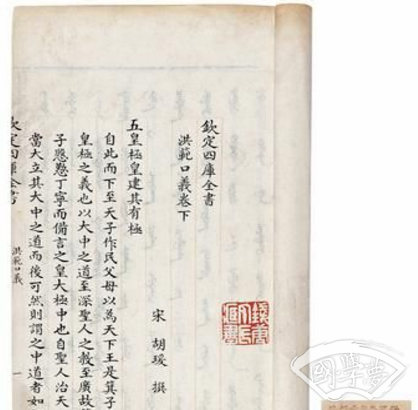 欽定四庫全書
洪範口義卷下
宋 胡瑗 撰
五皇極皇建其有極
自此而下至天子作民父母以為天下王是箕子
皇極之義也以大中之道至深聖人之教至廣故
子懇懃丁寧而備言之皇大極中也自聖人治天
當大立其大中之道而後可然則謂之中道者如
欽定四庫全書
洪範口義
一
國學夢